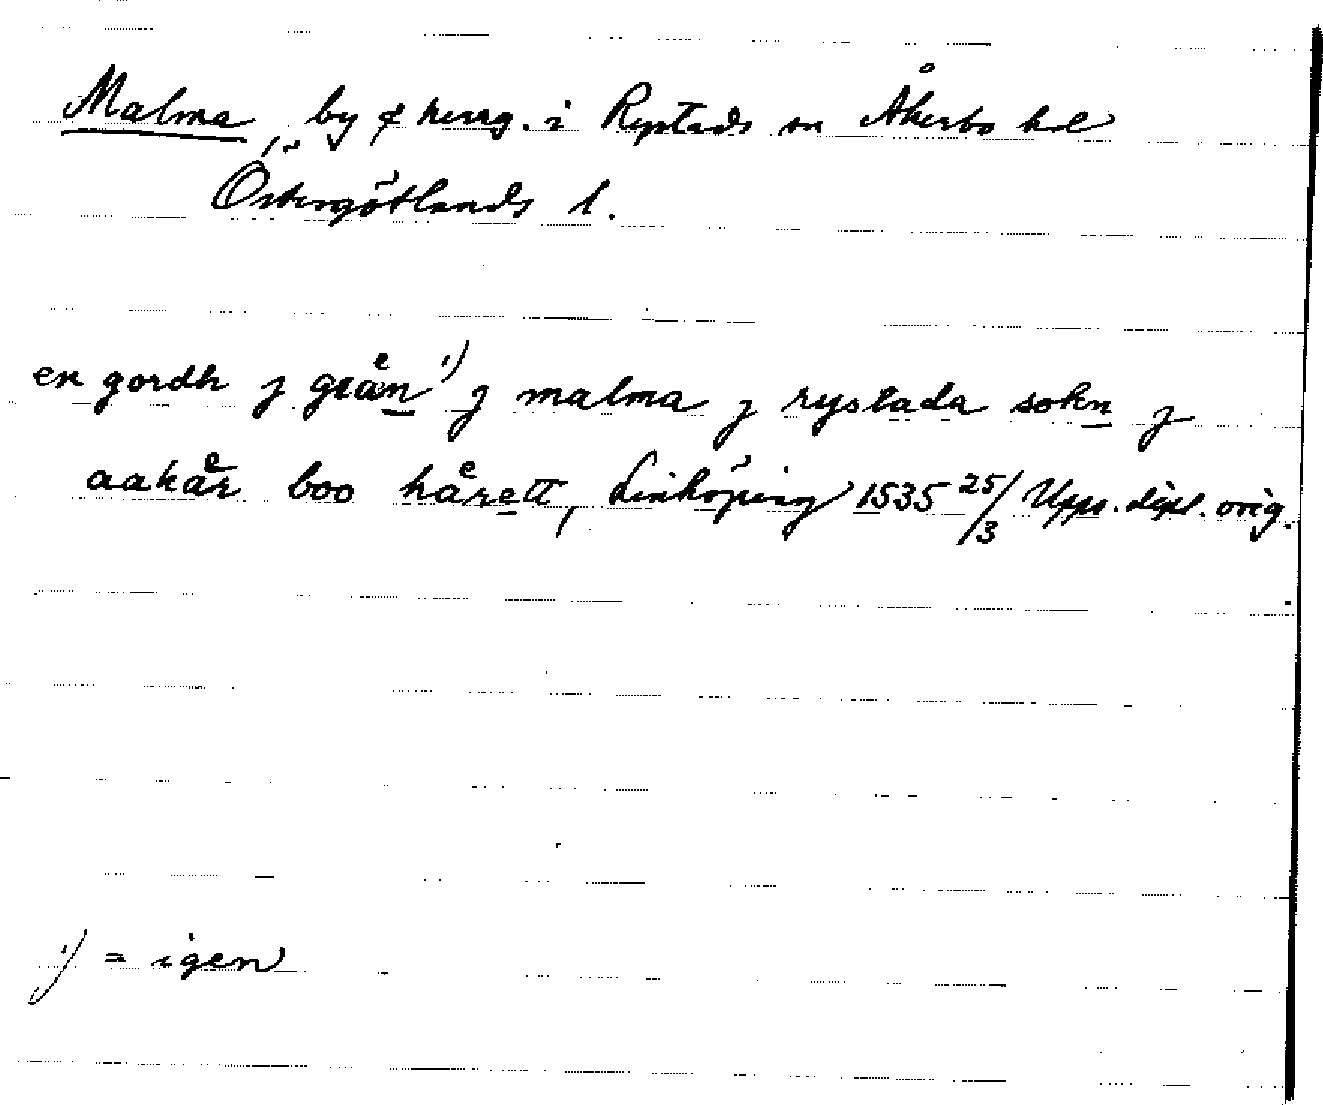 Malma, by & herrg. i Rystads sn Åkerbo hd
Östergötlands l.
en gordh j geaͤn ¹) j malma j rystada sokn j
aakaͤr boo haͤrett, Linköping 1535 25/3 Upps. dipl. orig.
¹) = igen